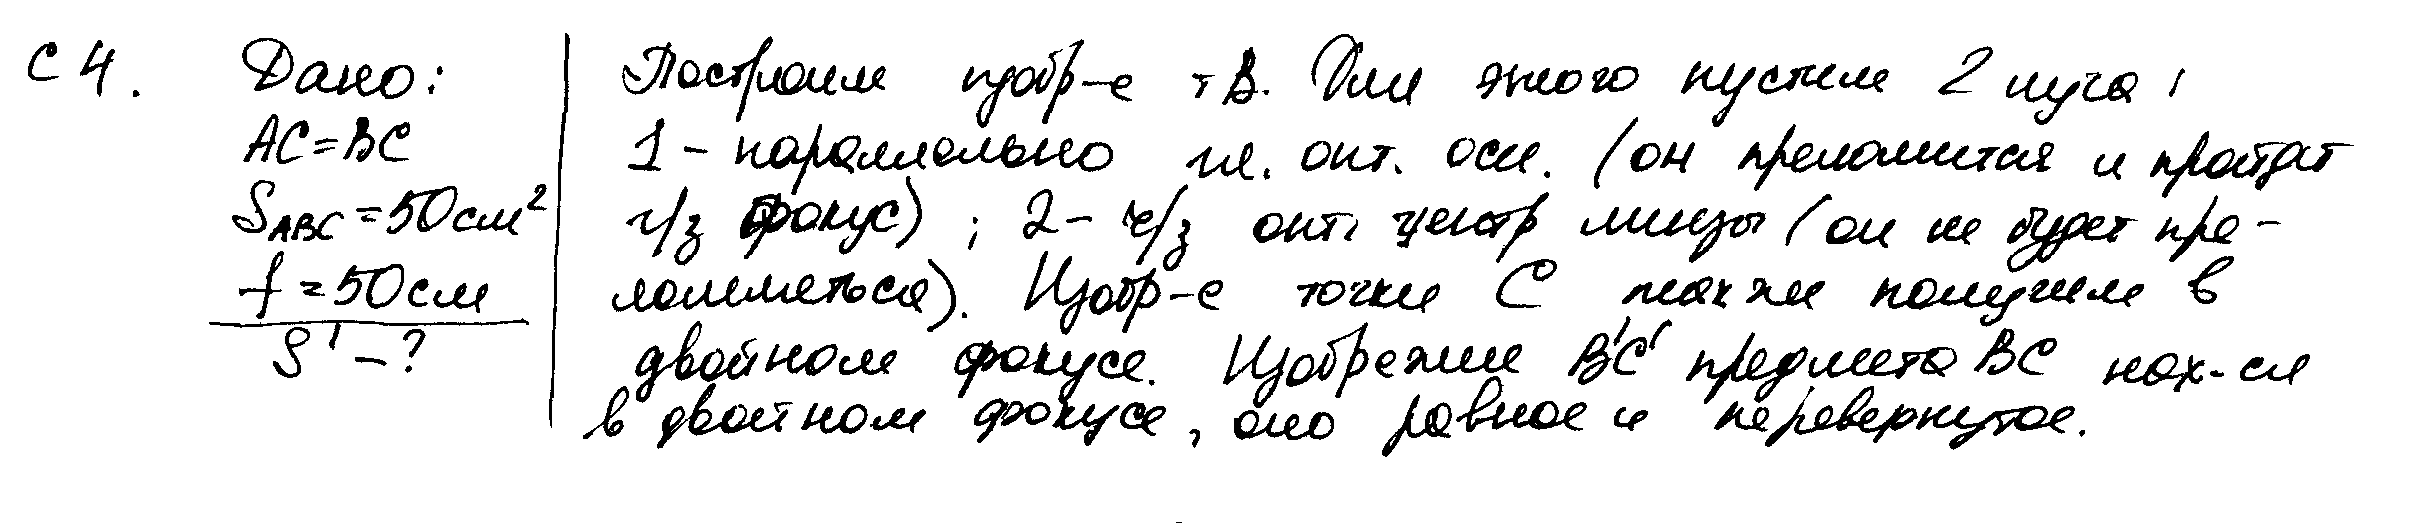 С 4. Дано: Построим изобр-е т В. Для этого пустим 2 луча:
АС=ВС 1 – параллельно гл. опт. оси. (он преломится и пройдет
S_АВС = 50 см² ч/з фокус); 2 – ч/з опт. центр линзы (он не будет пре-
f = 50 см ломляться). Изобр-е точки С также получим в
S' – ? двойном фокусе. Изображние В'С' предмета ВС нах-ся
в двойном фокусе, оно равное и перевернутое.